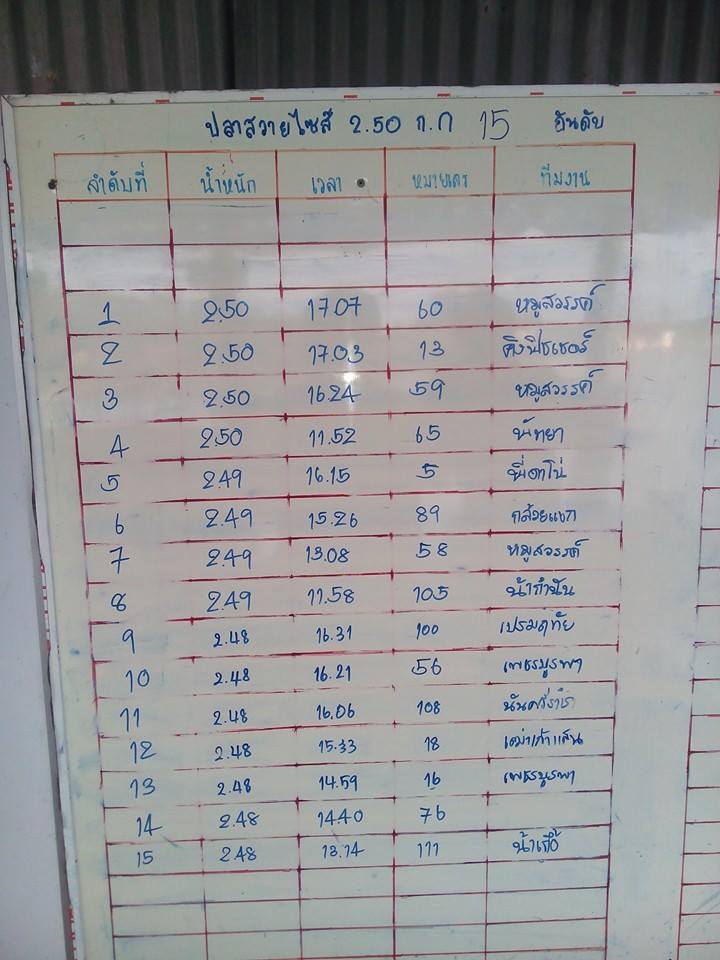 ปลาสวายไซส์ 2.50 ก.ก 15 อันดับ
ลำดับที่ น้ำหนัก เวลา หมายเลข ทีมงาน
1 2.50 17.07 60 หมูสวรรค์
2 2.50 17.03 13 คิงฟิชเชอร์
3 2.50 16.24 59 หมูสวรรค์
4 2.50 11.52 65 พัทยา
5 2.49 16.15 5 พี่ดาโน่
6 2.49 15.26 89 กล้วยแขก
7 2.49 13.08 58 หมูสวรรค์
8 2.49 11.58 105 น้ากำนัน
9 2.48 16.31 100 เปรมฤทัย
10 2.48 16.21 56 เพชรบูรพา
11 2.48 16.06 108
12 2.48 15.33 18
13 2.48 14.59 16 เพชรบูรพา
14 2.48 14.40 76
15 2.48 13.14 111